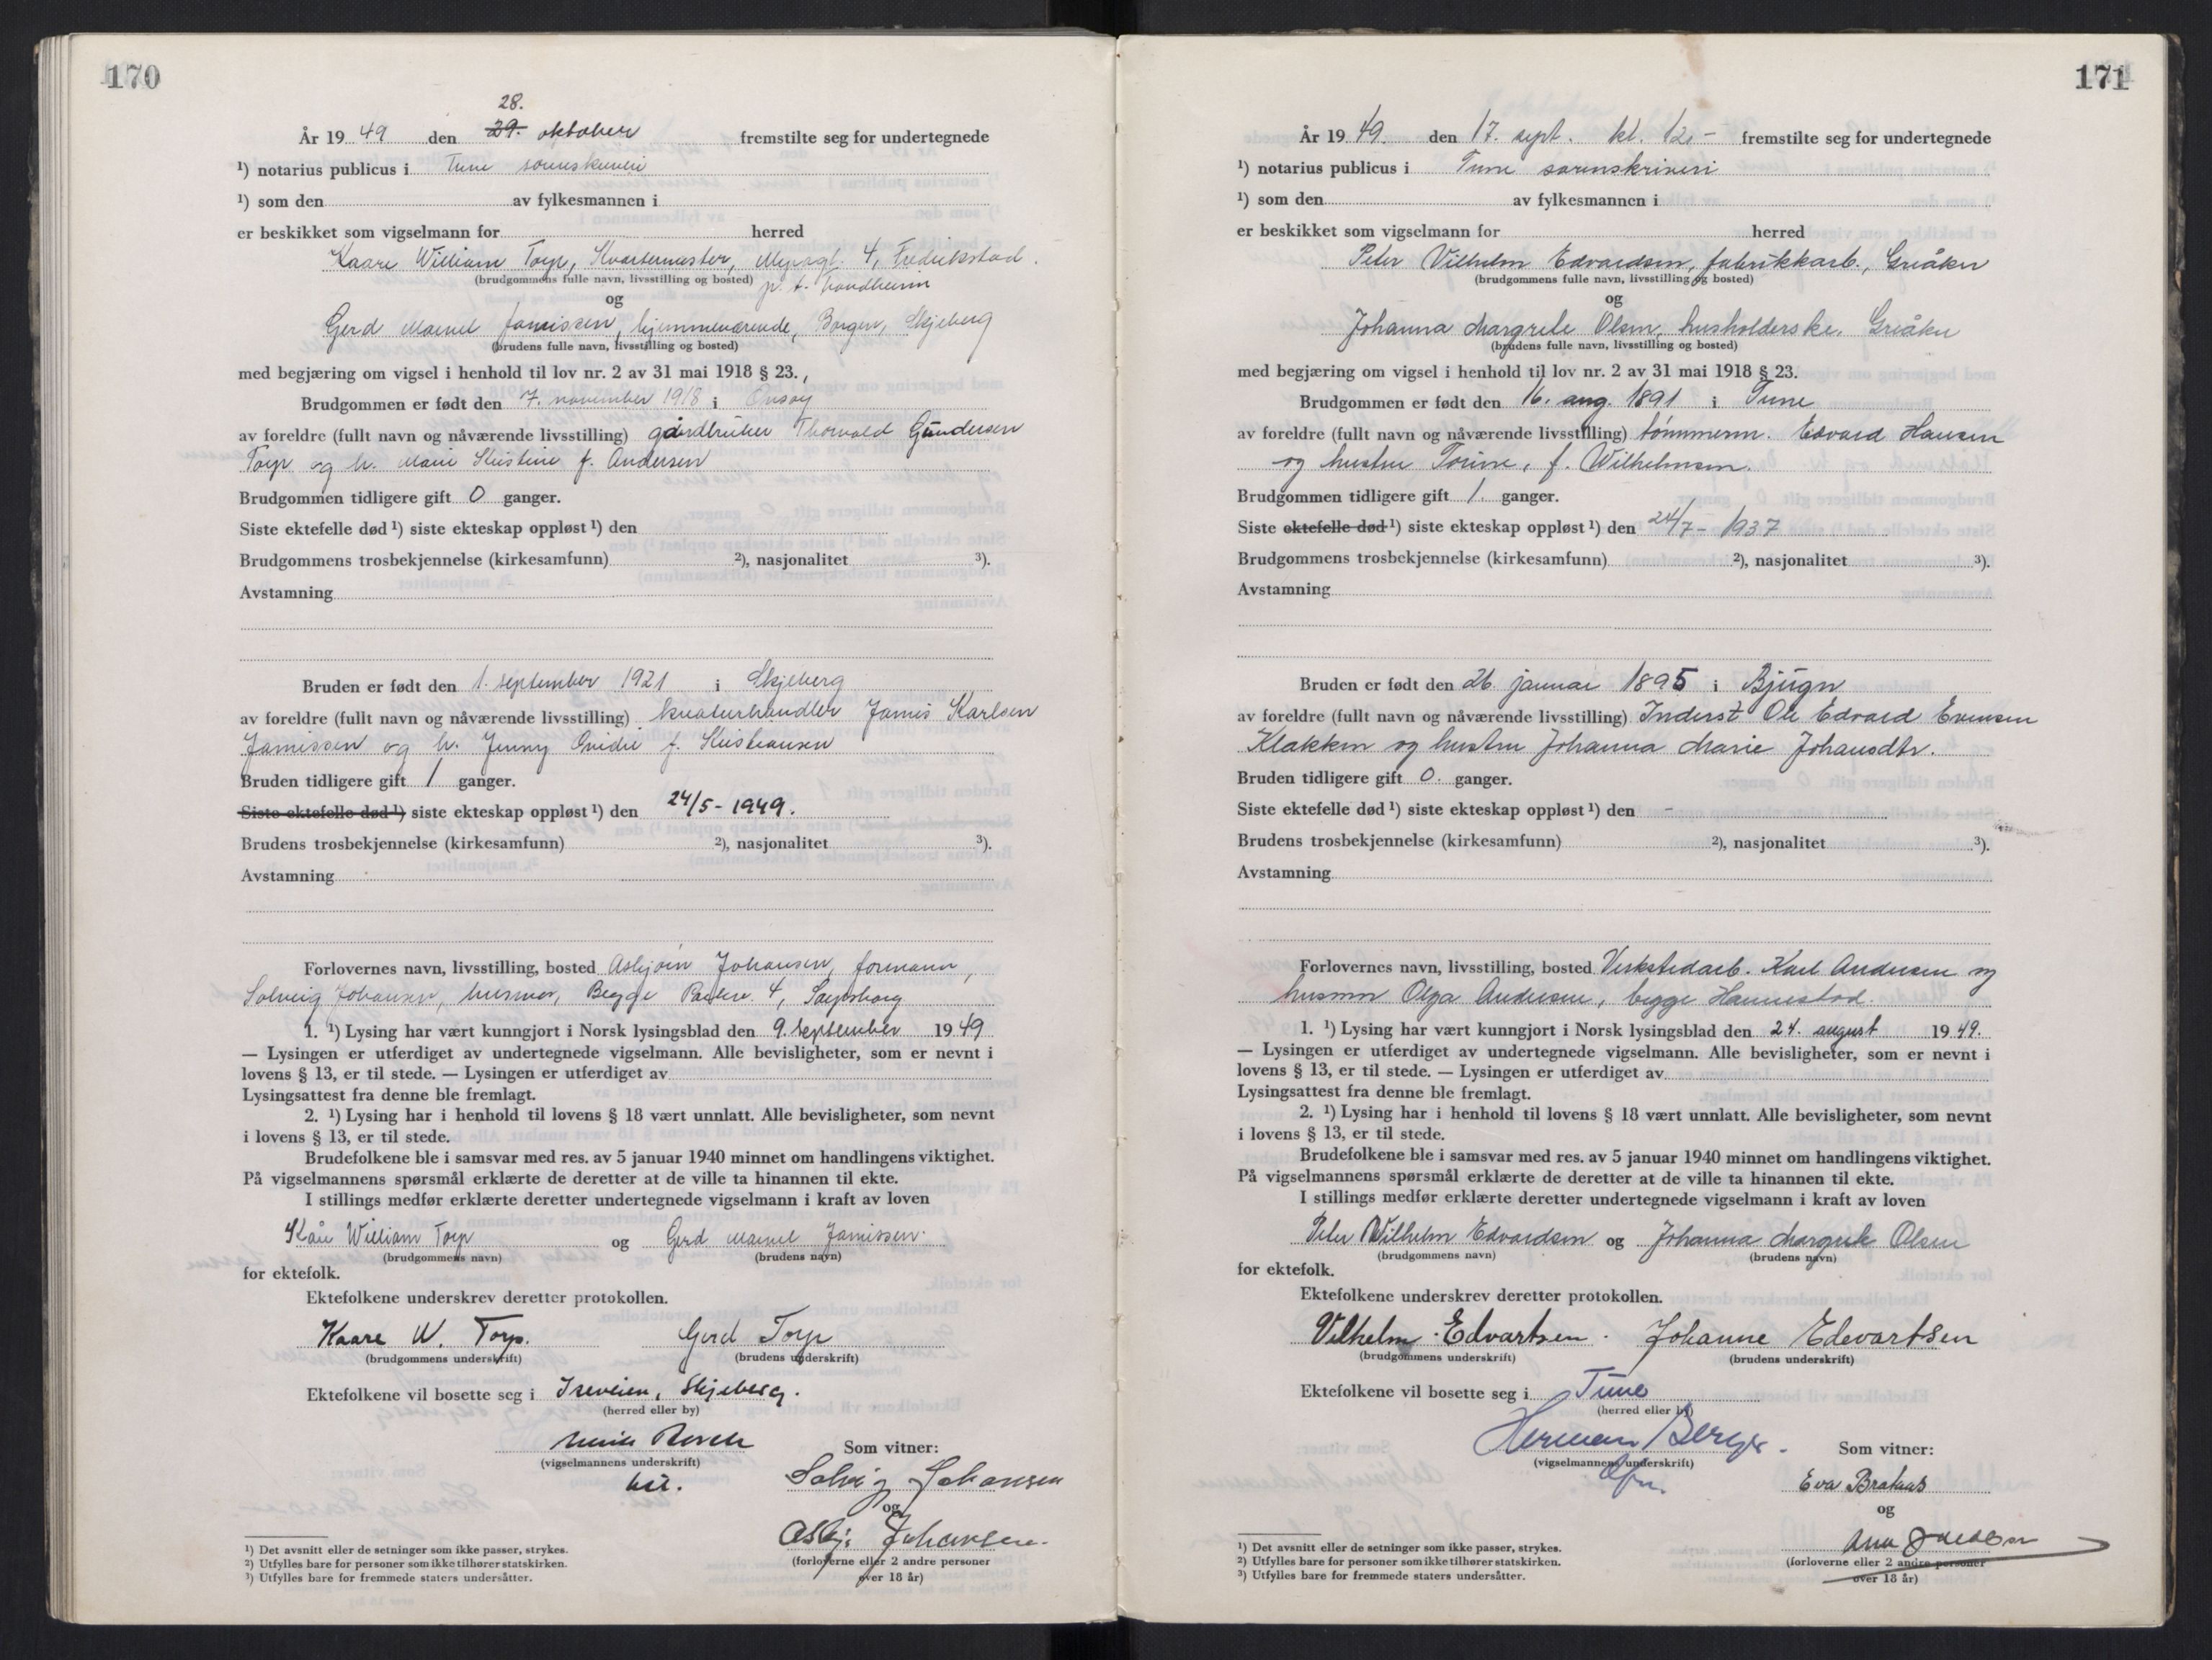 170
28.
År 19 49 den 29. oktober fremstilte seg for undertegnede
¹) notarius publicus i Tune sorenskriveri
¹) som den av fylkesmannen i
er beskikket som vigselmann for herred
Kaare William Torp, Kvartermester, 4, Fredrikstad.
(brudgommens fulle navn, livsstilling og bosted) p. t. Trondheim
og
Gerd Jamissen, hjemmeværende, Borgen, Skjeberg
(brudens fulle navn, livsstilling og bosted)
med begjæring om vigsel i henhold til lov nr. 2 av 31 mai 1918 § 23.
Brudgommen er født den 7. november 1918 i Onsøy
av foreldre (fullt navn og nåværende livsstilling) gårdbruker Thorvald Gundersen
Torp og h. Marie Kristine f. Andersen
Brudgommen tidligere gift 0 ganger.
Siste ektefelle død ¹) siste ekteskap oppløst ¹) den
Brudgommens trosbekjennelse (kirkesamfunn) ²), nasjonalitet ³).
Avstamning
Bruden er født den 1. september 1921 i Skjeberg
av foreldre (fullt navn og nåværende livsstilling) kreaturhandler Jamis Karlsen
Jamissen og h. Jenny f. Kristiansen
Bruden tidligere gift 1 ganger.
Siste ektefelle død ¹) siste ekteskap oppløst ¹) den 24/5 - 1949.
Brudens trosbekjennelse (kirkesamfunn) ²), nasjonalitet ³).
Avstamning
Forlovernes navn, livsstilling, bosted Asbjørn Johansen, formann,
Solveig Johansen, husmor, Begge 4, Sarpsborg
1. ¹) Lysing har vært kunngjort i Norsk lysingsblad den 9. september 19 49
— Lysingen er utferdiget av undertegnede vigselmann. Alle bevisligheter, som er nevnt i
lovens § 13, er til stede. — Lysingen er utferdiget av
Lysingsattest fra denne ble fremlagt.
2. ¹) Lysing har i henhold til lovens § 18 vært unnlatt. Alle bevisligheter, som nevnt
i lovens § 13, er til stede.
Brudefolkene ble i samsvar med res. av 5 januar 1940 minnet om handlingens viktighet.
På vigselmannens spørsmål erklærte de deretter at de ville ta hinannen til ekte.
I stillings medfør erklærte deretter undertegnede vigselmann i kraft av loven
William Torp og Gerd Jamissen
(brudgommens navn) (brudens navn)
for ektefolk.
Ektefolkene underskrev deretter protokollen.
Kaare W. Torp. Gerd Torp
(brudgommens underskrift) (brudens underskrift)
Ektefolkene vil bosette seg i Iseveien, Skjeberg.
(herred eller by)
Som vitner:
(vigselmannens underskrift)
Solveig Johansen
og
Asbj. Johansen.
(forloverne eller 2 andre personer
over 18 år)
¹) Det avsnitt eller de setninger som ikke passer, strykes.
²) Utfylles bare for personer som ikke tilhører statskirken.
³) Utfylles bare for fremmede staters undersåtter.
171
År 19 49. den 17. sept. kl. 12.- fremstilte seg for undertegnede
¹) notarius publicus i Tune sorenskriveri
¹) som den av fylkesmannen i
er beskikket som vigselmann for herred
Peter Vilhelm Edvardsen, fabrikkarb., Greåker
(brudgommens fulle navn, livsstilling og bosted)
og
Johanna Margrete Olsen, husholderske. Greåker
(brudens fulle navn, livsstilling og bosted)
med begjæring om vigsel i henhold til lov nr. 2 av 31 mai 1918 § 23.
Brudgommen er født den 16. aug. 1891 i Tune
av foreldre (fullt navn og nåværende livsstilling) tømmerm. Edvard Hansen
og hustru Torine, f. Wilhelmsen.
Brudgommen tidligere gift 1. ganger.
Siste ektefelle død ¹) siste ekteskap oppløst ¹) den 24/7 - 1937
Brudgommens trosbekjennelse (kirkesamfunn) ²), nasjonalitet ³).
Avstamning
Bruden er født den 26. januar 1895 i Bjugn
av foreldre (fullt navn og nåværende livsstilling) Inderst Ole Edvard Evensen
Klakken og hustru Johanna Marie Johansdtr.
Bruden tidligere gift 0. ganger.
Siste ektefelle død ¹) siste ekteskap oppløst ¹) den -
Brudens trosbekjennelse (kirkesamfunn) ²), nasjonalitet ³).
Avstamning
Forlovernes navn, livsstilling, bosted Verkstedarb. Karl Andersen og
husmor Olga Andersen, begge Hannestad.
1. ¹) Lysing har vært kunngjort i Norsk lysingsblad den 24. august 19 49.
— Lysingen er utferdiget av undertegnede vigselmann. Alle bevisligheter, som er nevnt i
lovens § 13, er til stede. — Lysingen er utferdiget av
Lysingsattest fra denne ble fremlagt.
2. ¹) Lysing har i henhold til lovens § 18 vært unnlatt. Alle bevisligheter, som nevnt
i lovens § 13, er til stede.
Brudefolkene ble i samsvar med res. av 5 januar 1940 minnet om handlingens viktighet.
På vigselmannens spørsmål erklærte de deretter at de ville ta hinannen til ekte.
I stillings medfør erklærte deretter undertegnede vigselmann i kraft av loven
Peter Wilhelm Edvardsen og Johanna Margrete Olsen
(brudgommens navn) (brudens navn)
for ektefolk.
Ektefolkene underskrev deretter protokollen.
Vilhelm Edvartsen. Johanne Edevartsen
(brudgommens underskrift) (brudens underskrift)
Ektefolkene vil bosette seg i Tune
(herred eller by)
Herman Berge. Som vitner:
(vigselmannens underskrift)
Eva Brataas
og
(forloverne eller 2 andre personer
over 18 år)
¹) Det avsnitt eller de setninger som ikke passer, strykes.
²) Utfylles bare for personer som ikke tilhører statskirken.
³) Utfylles bare for fremmede staters undersåtter.